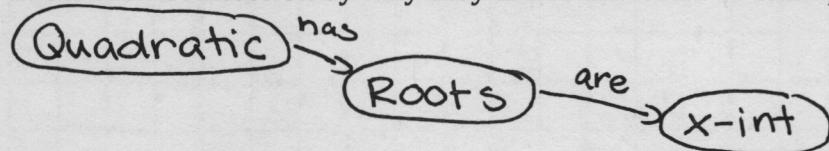 Quadratic
has
Roots
are
x-int